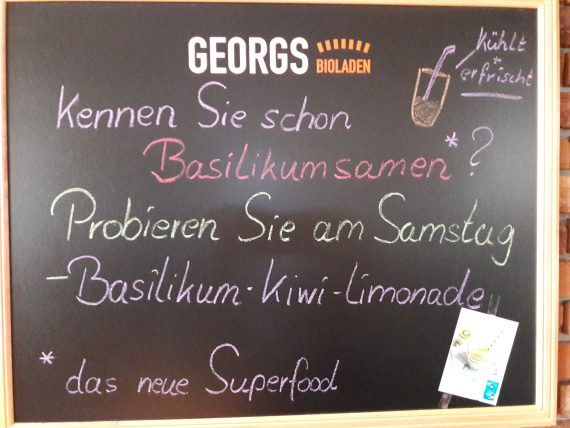 GEORGS BIOLADEN
kühlt
* erfrischt
Kennen Sie schon
Basilikumsamen* ?
Probieren Sie am Samstag
-Basilikum-Kiwi-Limonade"
* das neue Superfood